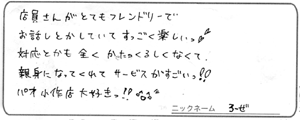 店員さんがとてもフレンドリーで
お話しとかしていてすっごく楽しいっ♪
対応とかも全くかたっくるしくなくて、
親身になってくれてサービスがすごいっ!!
パオ小作店大好きっ!!
ニックネーム ろーぜ